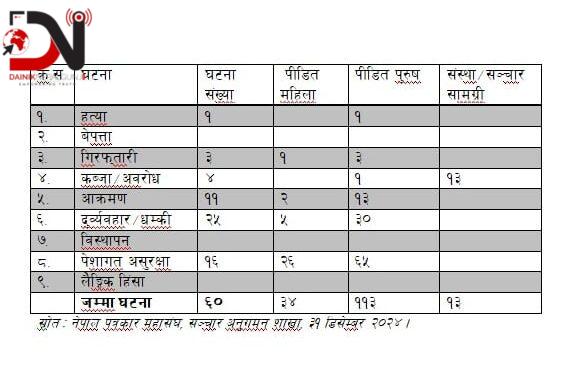 DN
DAINIK
क्र.स. घटना घटना संख्या पीडित महिला पीडित पुरुष संस्था/सञ्चार सामग्री
१. हत्या १ १
२. बेपत्ता
३. गिरफ्तारी ३ १ ३
४. कब्जा/अवरोध ४ १ १३
५. आक्रमण ११ २ १३
६. दुर्व्यवहार/धम्की २५ ५ ३०
७. बिस्थापन
८. पेशागत असुरक्षा १६ २६ ६५
९. लैङ्गिक हिंसा
जम्मा घटना ६० ३४ ११३ १३
स्रोत: नेपाल पत्रकार महासंघ, सञ्चार अनुगमन शाखा, ३१ डिसेम्बर २०२४।